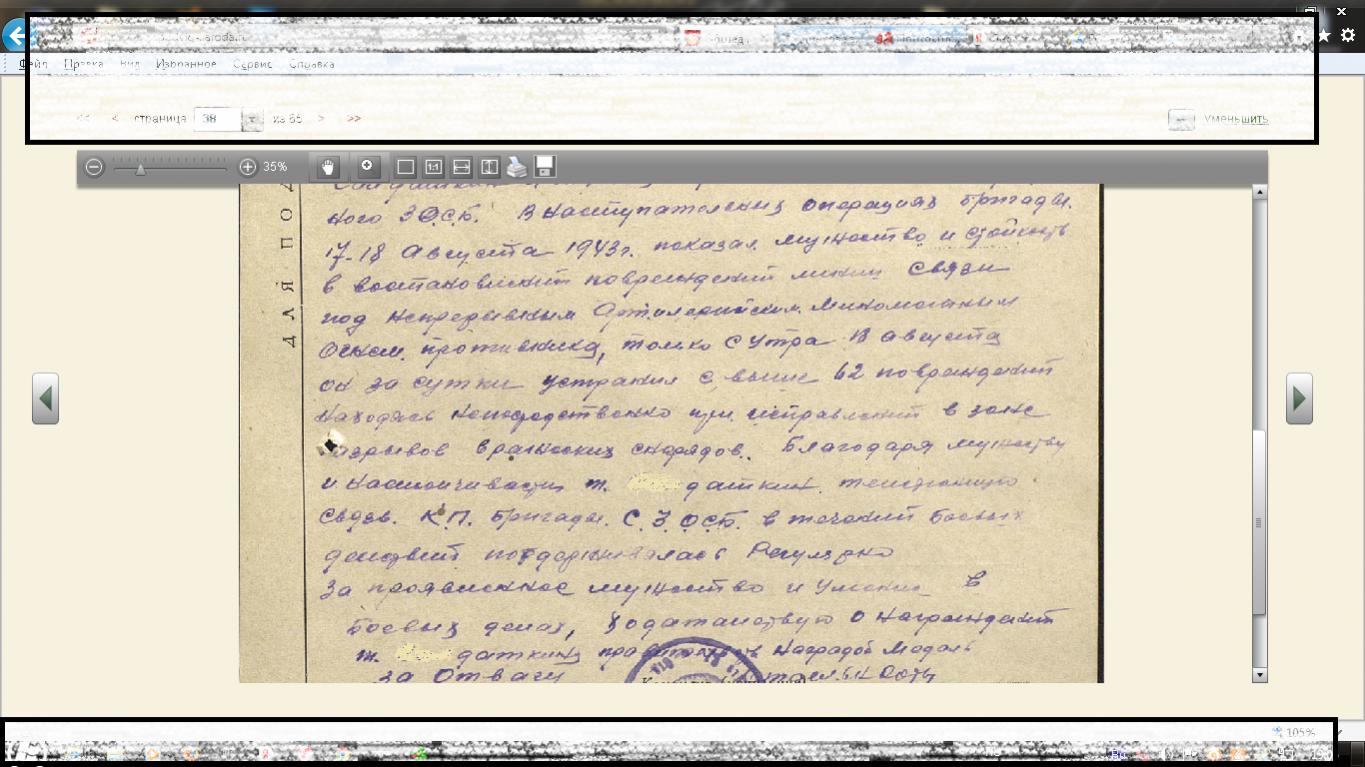 Файл Правка Вид Избранное Сервис Справка
<< < страница 38 из 65 > >> Уменьшить
35% 1:1
ДЛЯ ПО
ного З О.С.Б. В наступательных операциях бригады.
17-18 Августа 1943г. показал мужество и стойкость
в востановлений повреждений линии связи
под непрерывным Артилерийским Миномётным
Огнем противника, только с утра 18 августа
он за сутки устранил с выше 62 повреждений
находясь непосредственно при исправлений в зоне
разрывов вражеских снарядов. Благодаря мужеству
и настойчивости т. даткин
К.П. Бригады. С З О.С.Б. в течений боевых
действий поддерживалась Регулярно
За проявленное мужество и Умение в
боевых делах, ходатайствую о награждений
т. даткина Наградой Медаль
За Отвагу
105%